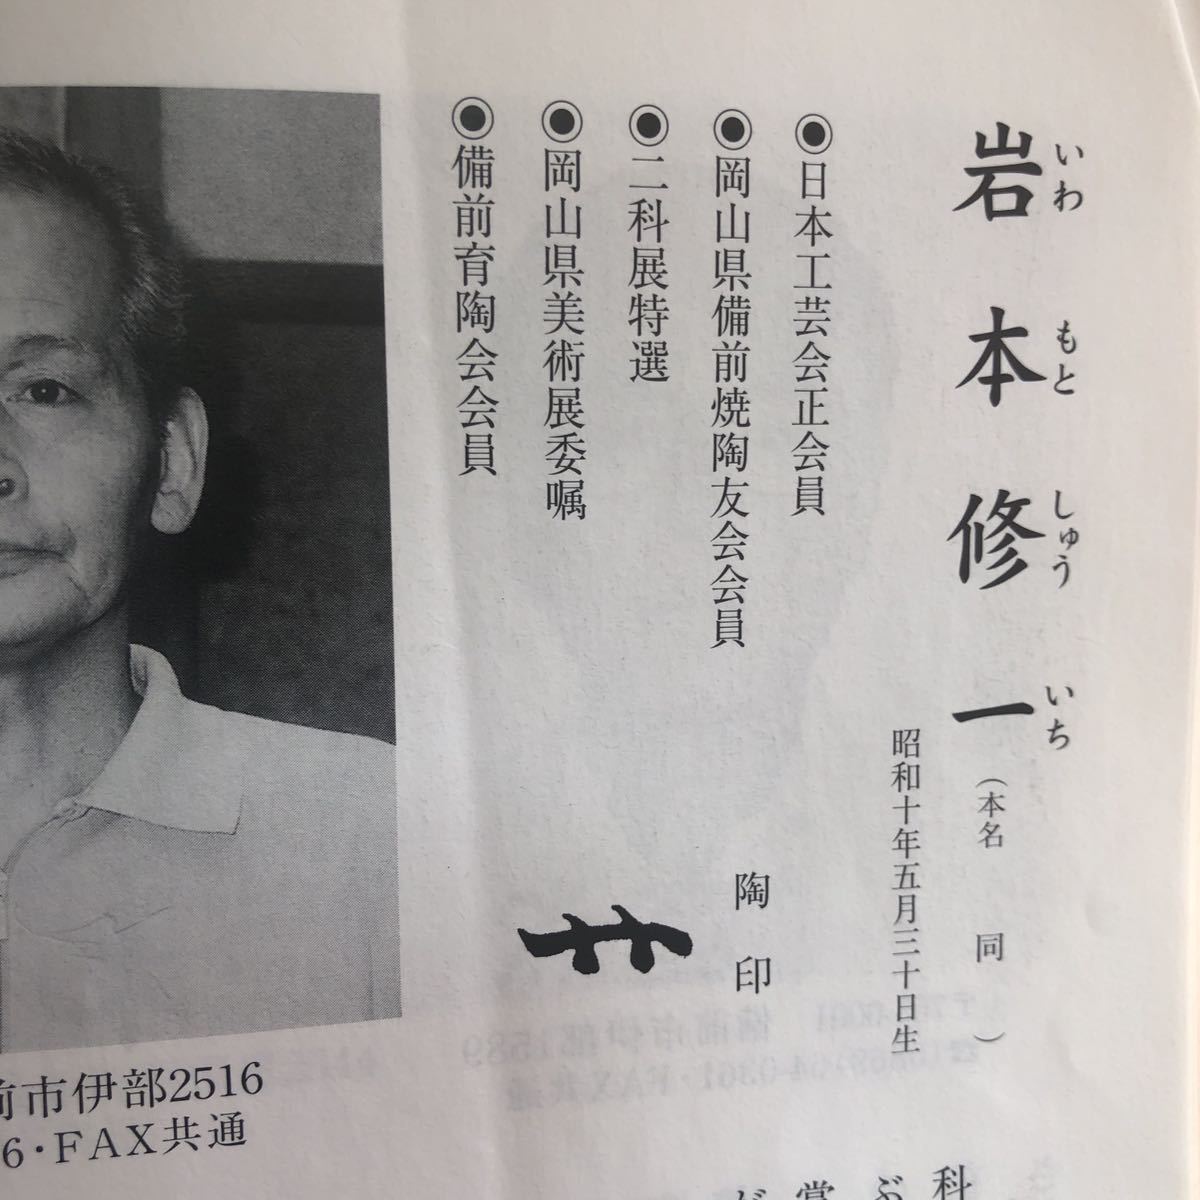 岩本修一
いわ もと しゅう いち
（本名 同）
昭和十年五月三十日生
◉日本工芸会正会員
◉岡山県備前焼陶友会会員
◉二科展特選
◉岡山県美術展委嘱
◉備前育陶会会員
陶印
前市伊部2516
6・FAX共通
科
ぶ
賞
が